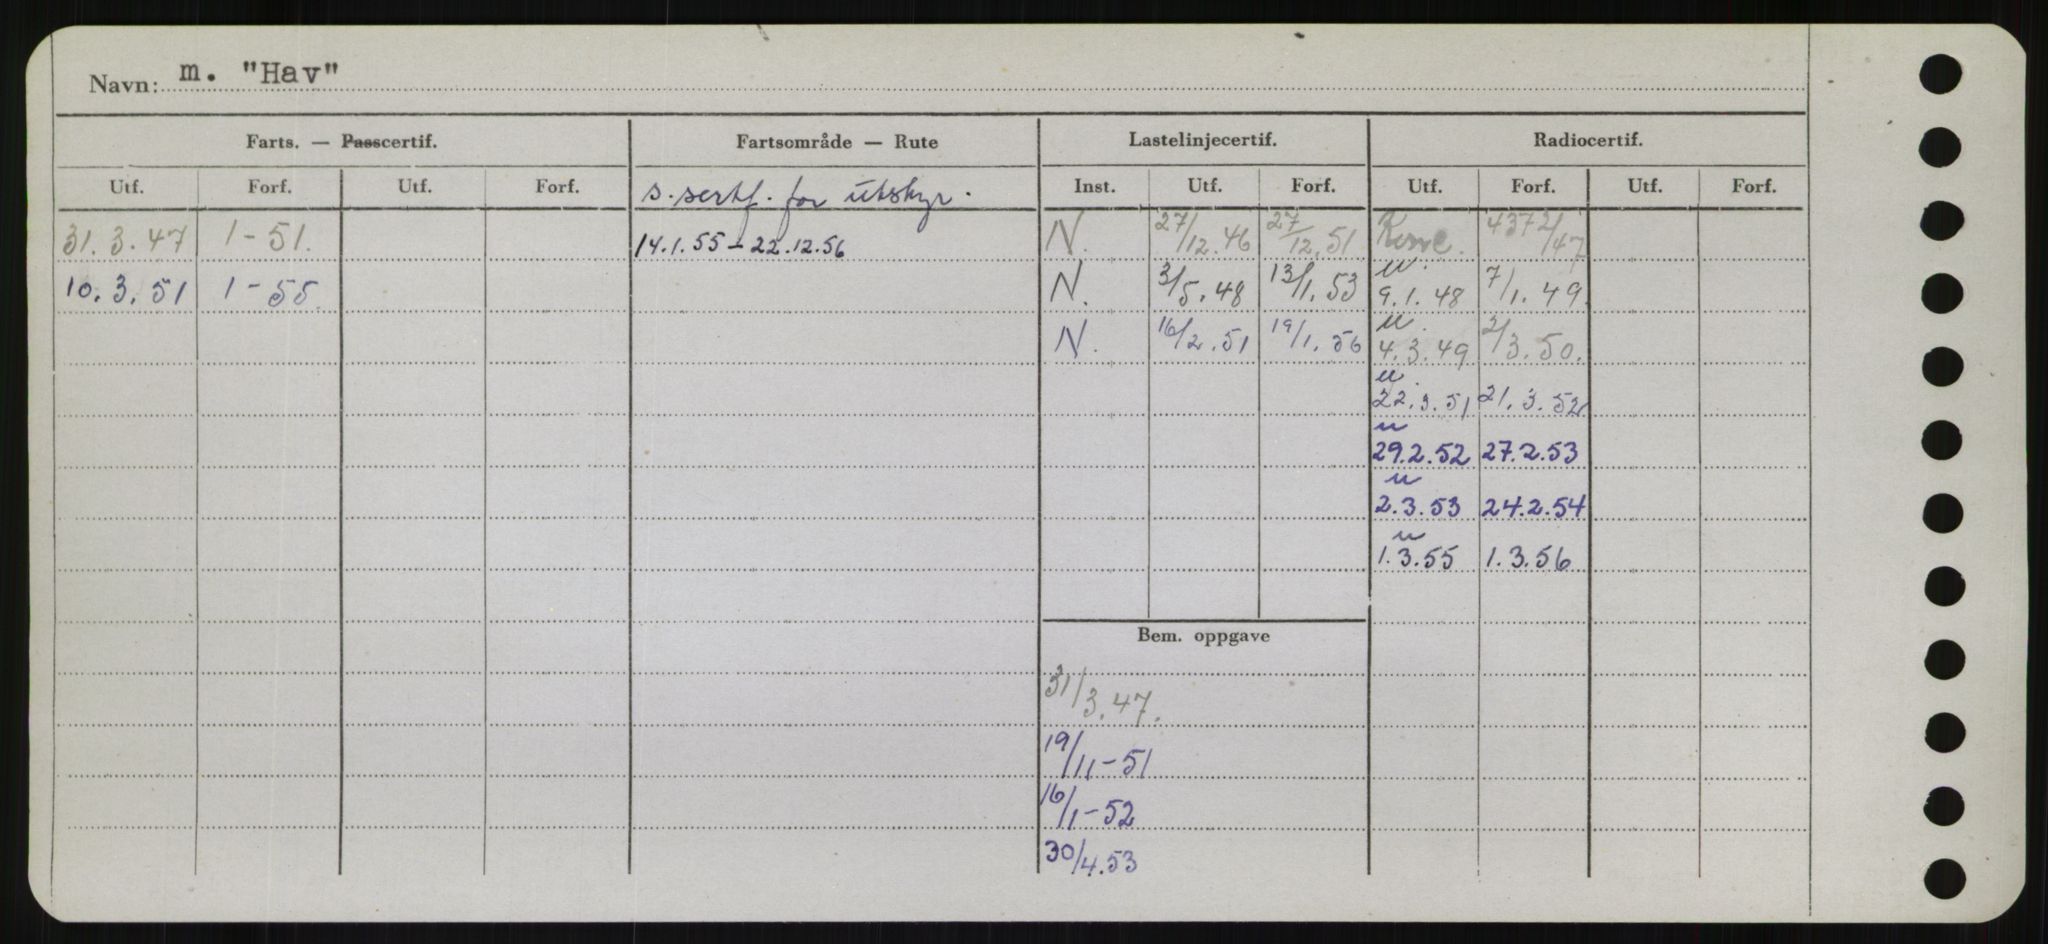 Navn: m. "Hav"
Farts. — Passcertif. Fartsområde — Rute Lastelinjecertif. Radiocertif.
Utf. Forf. Utf. Forf. s. sertf. for utskyr. Inst. Utf. Forf. Utf. Forf. Utf. Forf.
31.3.47 1-51. 14.1.55-22.12.56 N. 27/12.46 27/12.51 4372/47
10.3.51 1-55. N. 3/5.48 13/1.53 u. 9.1.48 7/1.49.
N. 16/2.51 19/1.56 u. 4.3.49 2/3.50.
u. 22.3.51 21.3.52
u 29.2.52 27.2.53
u 2.3.53 24.2.54
u 1.3.55 1.3.56
Bem. oppgave
31/3.47.
19/11-51
16/1-52
30/4.53